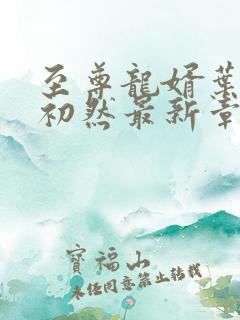 至尊龍婿葉
初然最新章
寶福山
未任同意禁止转载